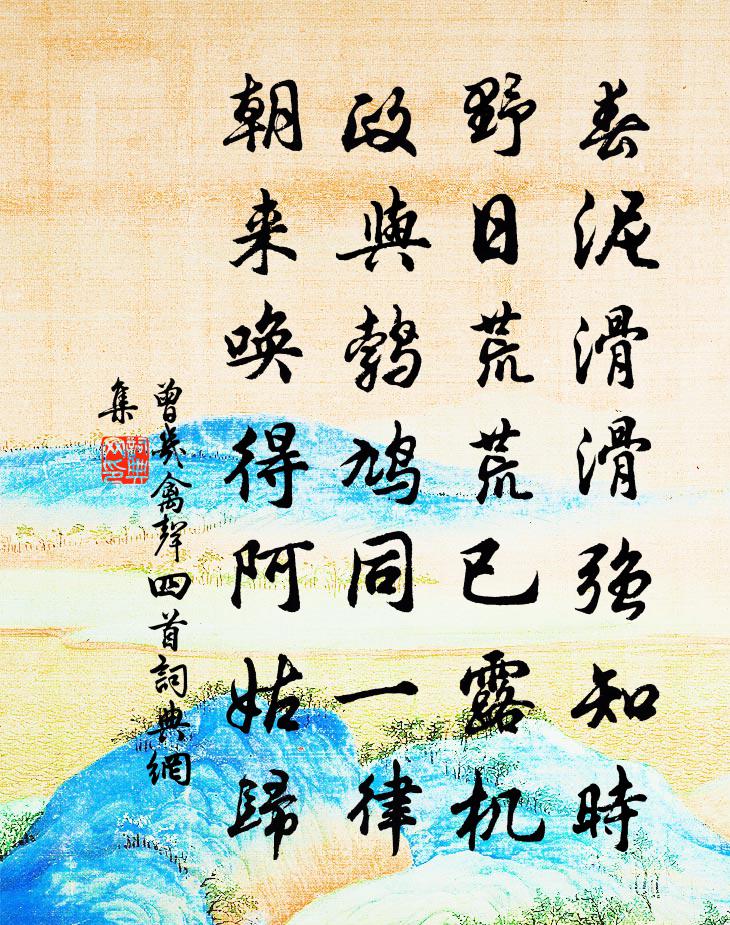 春泥滑滑強知時
野日荒荒已露机
政與鵓鳩同一律
朝来喚得阿姑歸
曾幾禽聲四首詞典網
集